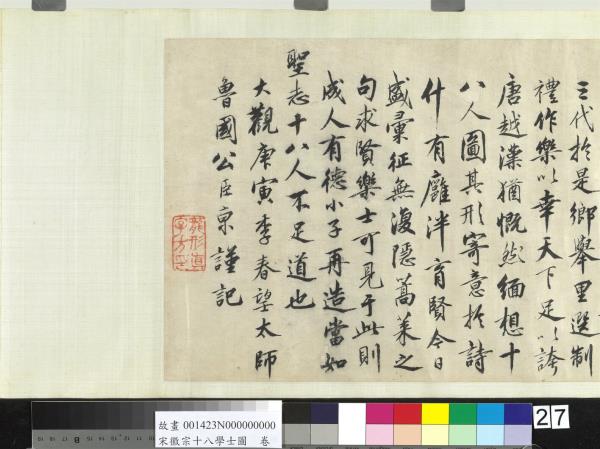 三代於是鄉舉里選制
禮作樂以幸天下足以誇
唐越漢猶慨然緬想十
八人圖其形寄意於詩
什有廱泮育賢今日
盛彙征無復隱蒿萊之
句求賢樂士可見于此則
成人有德小子再造當如
聖志十八人不足道也
大觀庚寅季春望太師
魯國公臣京謹記
故畫 001423N000000000
宋徽宗十八學士圖 卷
27